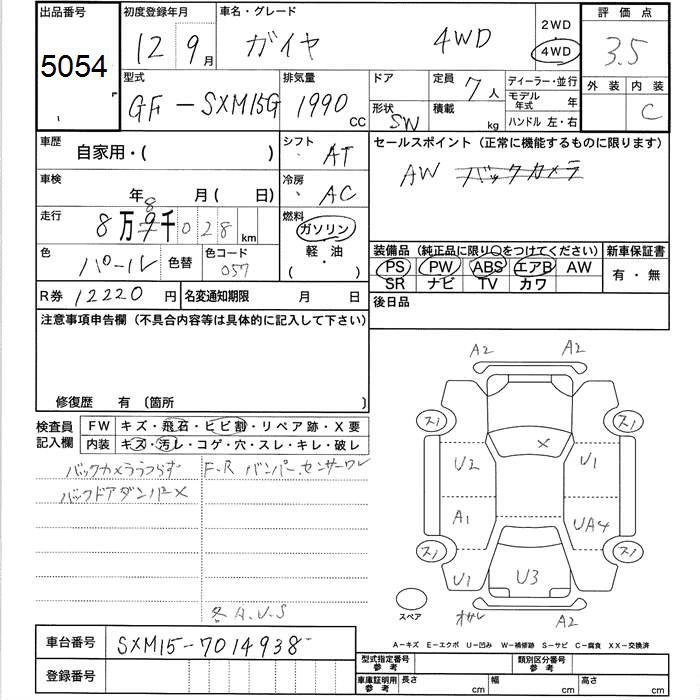 出品番号
5054
初度登録年月
12 9月
車名・グレード
ガイヤ 4WD
2WD
4WD
評価点
3.5
外装 内装
C
型式
GF-SXM15G
排気量
1990 CC
ドア
形状 SW
定員 7人
積載 kg
ディーラー・並行
モデル年式 年
ハンドル 左・右
車歴
自家用・( )
シフト
AT
セールスポイント(正常に機能するものに限ります)
AW バックカメラ
車検
年8月(日)
冷房
AC
走行
8万9千028km
燃料
ガソリン
軽・油
( )
色
パール
色替
色コード
057
装備品(純正品に限り○をつけてください)
PS PW ABS エアB AW
SR ナビ TV カワ
新車保証書
有・無
R券 12220円
名変通知期限 月 日
後日品
注意事項申告欄(不具合内容等は具体的に記入して下さい)
修復歴 有〔箇所 〕
検査員記入欄
FW キズ・飛石・ヒビ割・リペア跡・X要
内装 キズ・汚レ・コゲ・穴・スレ・キレ・破レ
バックカメラうつらず
F-R バンパー.センサーワレ
バックドアダンパー×
各A.U.S
A2 A2
スリ スリ
X
U2 U1
A1 UA4
スリ スリ
U1 U3
オサレ A2
スペア
車台番号
SXM15-7014938
登録番号
A-キズ E-エクボ U-凹み W-補修跡 S-サビ C-腐食 XX-交換済
型式指定番号 参考
類別区分番号 参考
車庫証明用 参考
長さ cm
幅 cm
高さ cm